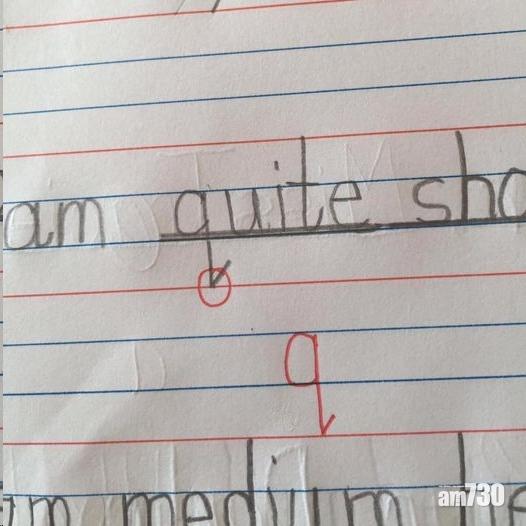 am quite sho
q
am medium he
am730